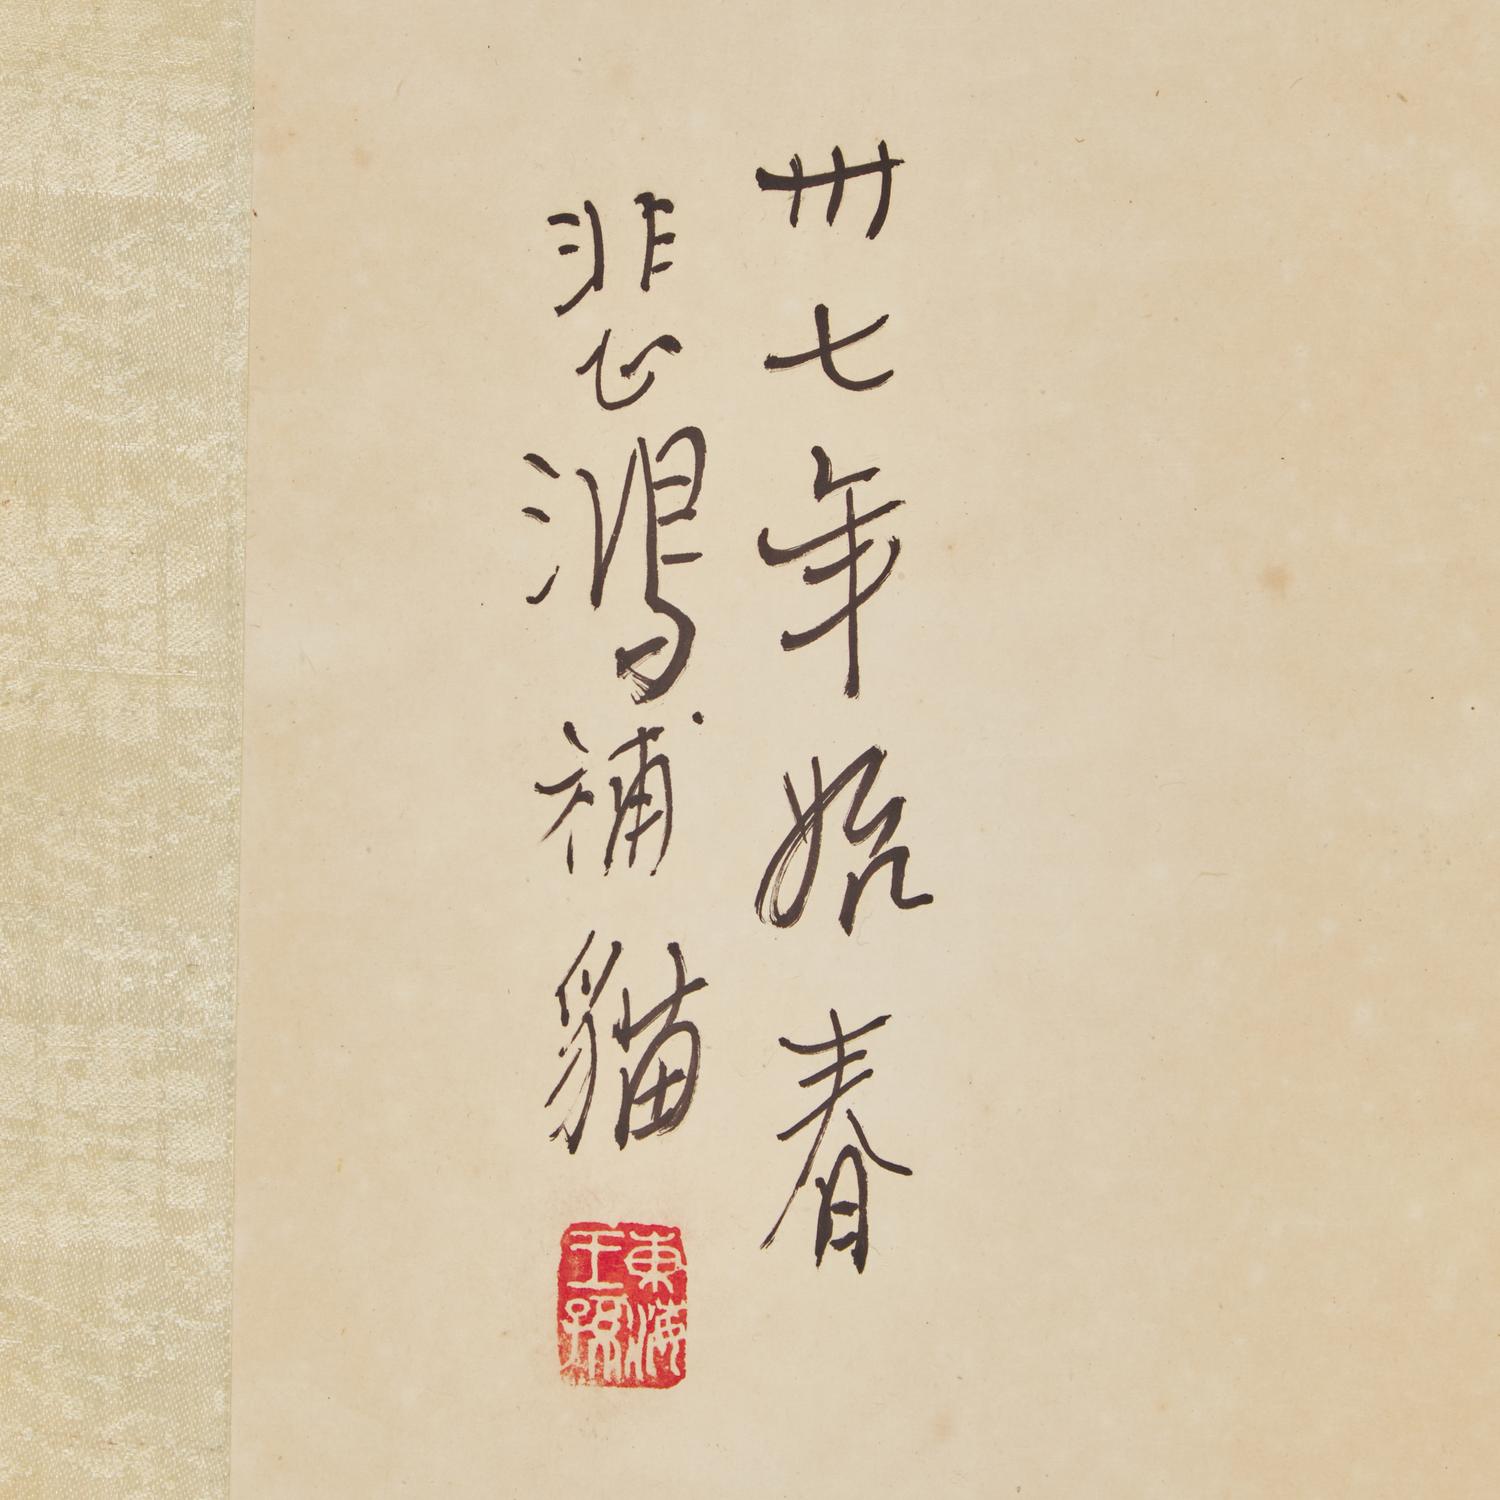 卅七年始春
悲鴻補貓
東海王孫